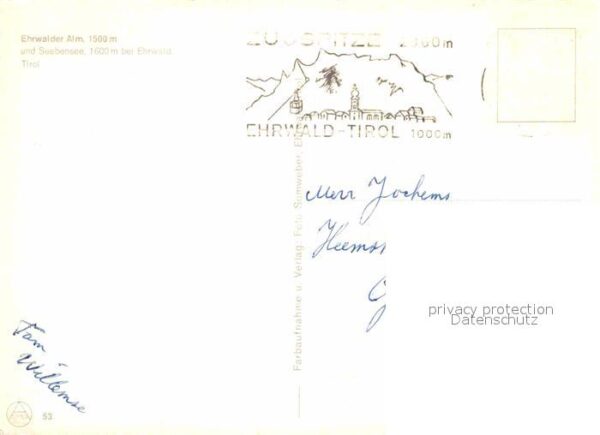 Ehrwalder Alm, 1500 m
und Seebensee, 1600 m bei Ehrwald
Tirol
ZUGSPITZE 2960m
EHRWALD-TIROL 1000m
Farbaufnahme u. Verlag: Foto Somweber,
Jochems
privacy protection
Datenschutz
Fam
Willemse
53